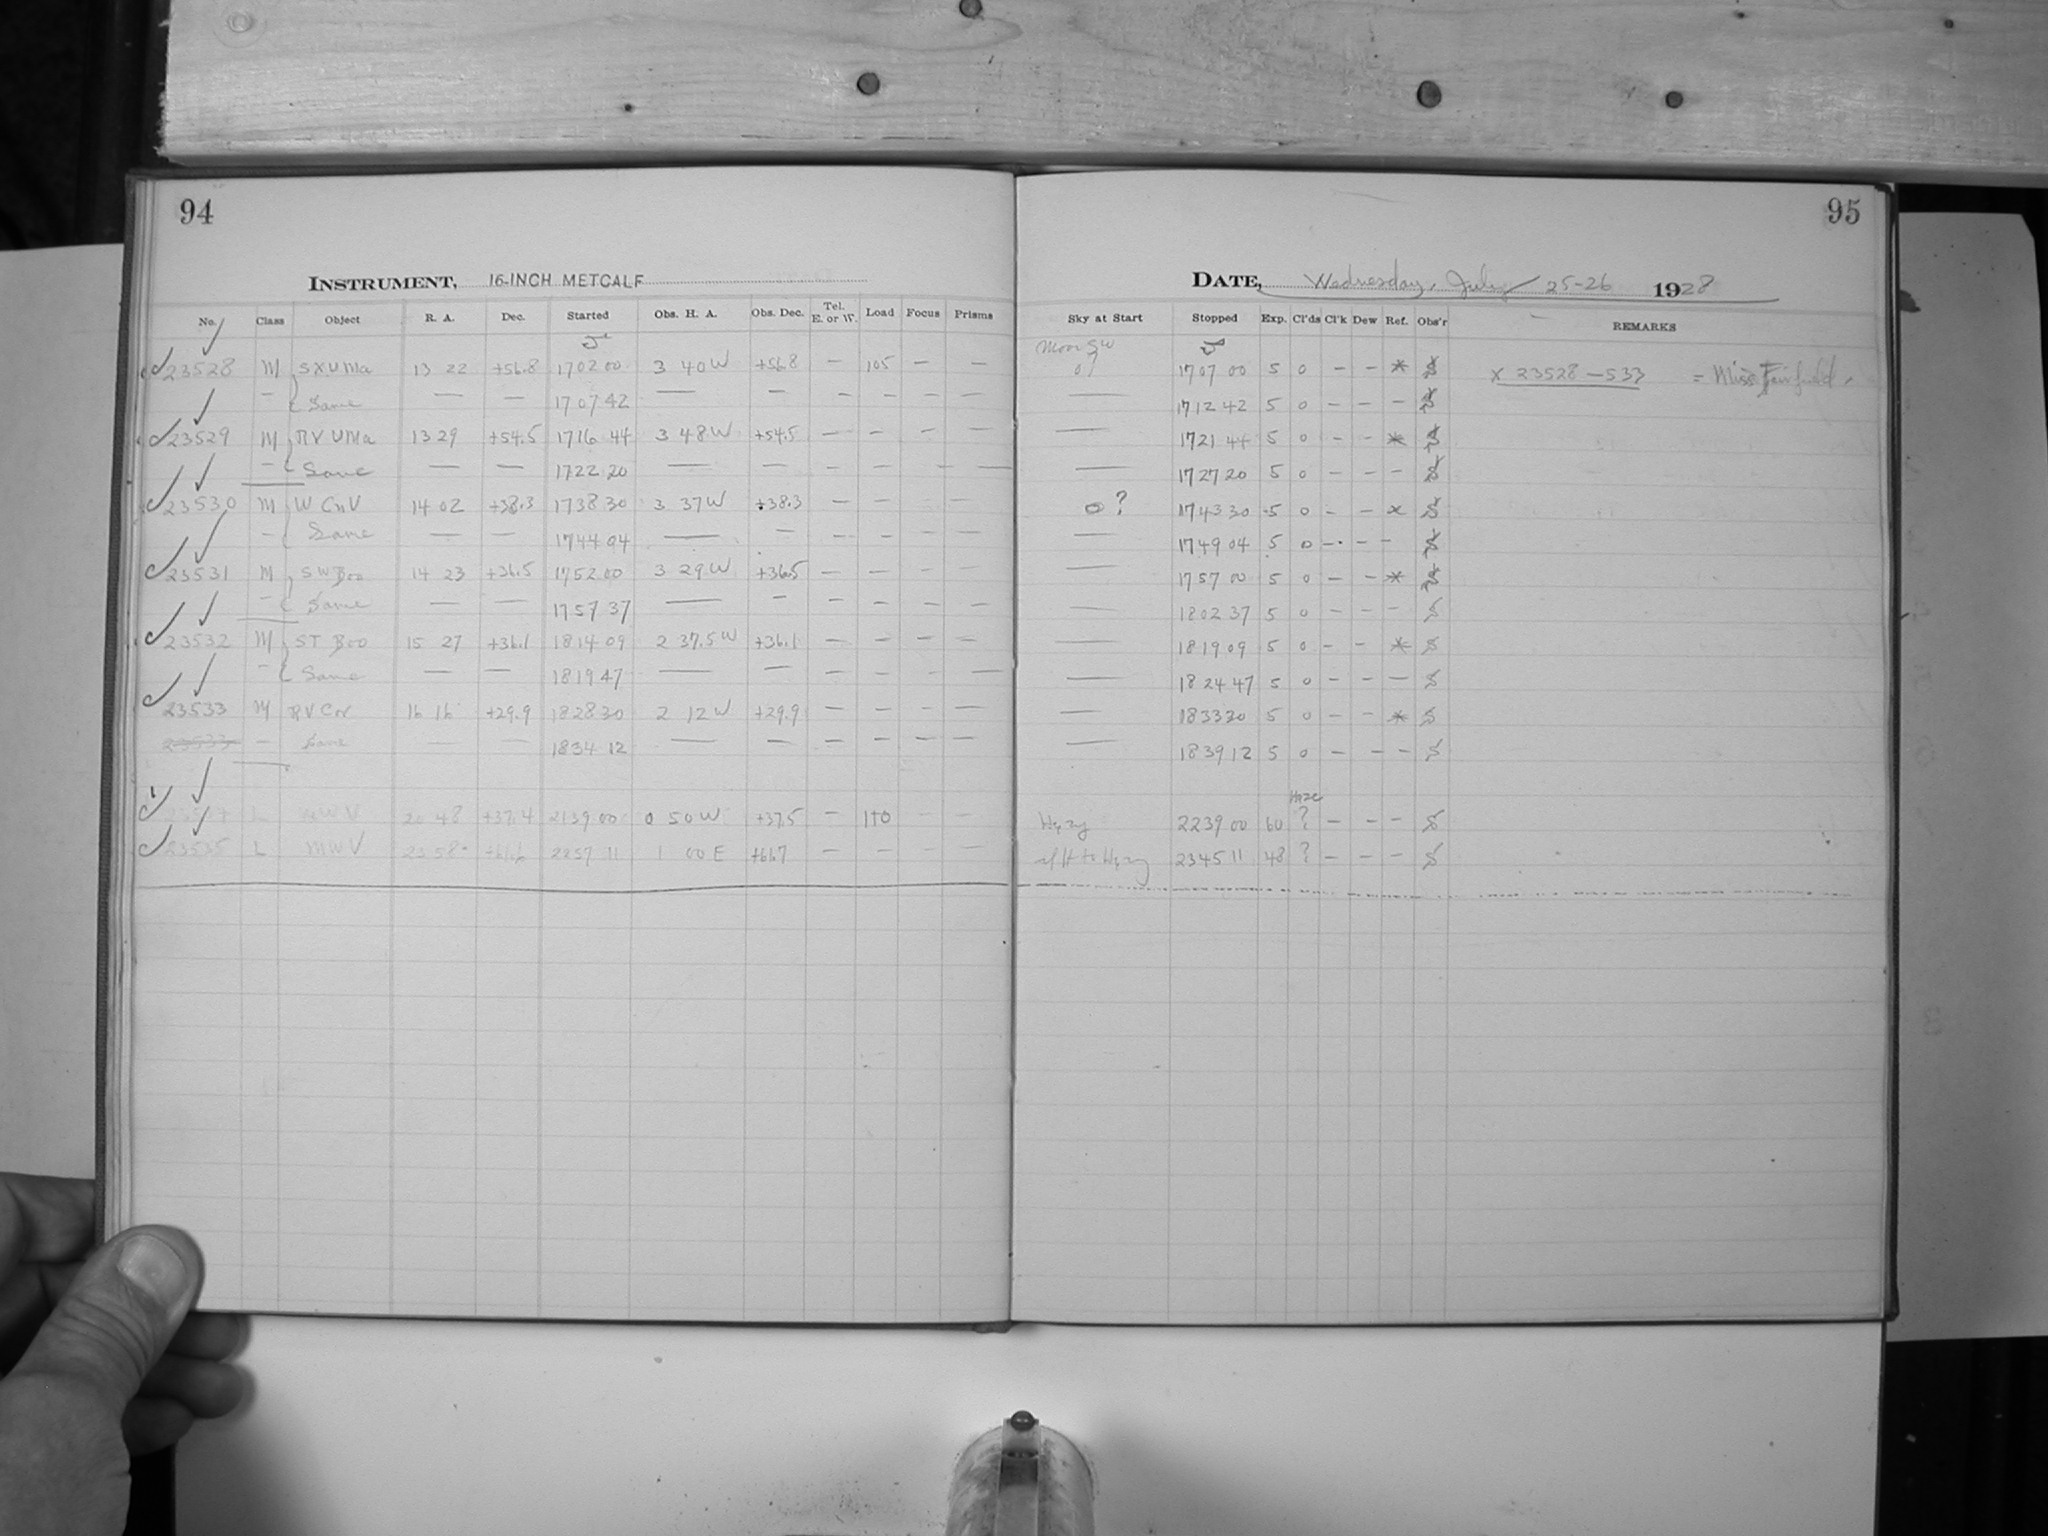 94
INSTRUMENT, 16-INCH METCALF
No. Class Object R. A. Dec. Started Obs. H. A. Obs. Dec. Tel. E. or W. Load Focus Prisms
23528 M SX UMa 13 22 +56.8 1702 00 3 40 W +56.8 — 105 — —
— Same — — 1707 42 — — — — — —
23529 M RV UMa 13 29 +54.5 1716 44 3 48 W +54.5 — — — —
— Same — — 1722 20 — — — — — —
23530 M W CnV 14 02 +38.3 1738 30 3 37 W +38.3 — — — —
— Same — — 1744 04 — — — — — —
23531 M SW Boo 14 23 +36.5 1752 00 3 29 W +36.5 — — — —
— Same — — 1757 37 — — — — — —
23532 M ST Boo 15 27 +36.1 1814 09 2 37.5 W +36.1 — — — —
— Same — — 1819 47 — — — — — —
23533 M RV Cor 16 16 +29.9 1828 30 2 12 W +29.9 — — — —
23533 — Same — — 1834 12 — — — — — —
L MWV 20 48 +37.4 2139 00 0 50 W +37.5 — 110 — —
23535 L MWV 23 58 2257 11 1 00 E +61.7 — — — —
95
DATE, Wednesday, July 25-26 1928
Sky at Start Stopped Exp. Cl'ds Cl'k Dew Ref. Obs'r REMARKS
Moon SW
1707 00 5 0 — — * S x 23528-533 = Miss Fairfield.
— 1712 42 5 0 — — — S
— 1721 44 5 0 — — * S
— 1727 20 5 0 — — — S
0? 1743 30 5 0 — — x S
— 1749 04 5 0 — — — S
— 1757 00 5 0 — — * S
— 1802 37 5 0 — — — S
— 1819 09 5 0 — — * S
— 1824 47 5 0 — — — S
— 1833 30 5 0 — — * S
— 1839 12 5 0 — — — S
Haze
Hazy 2239 00 60 ? — — — S
to Hazy 2345 11 48 ? — — — S